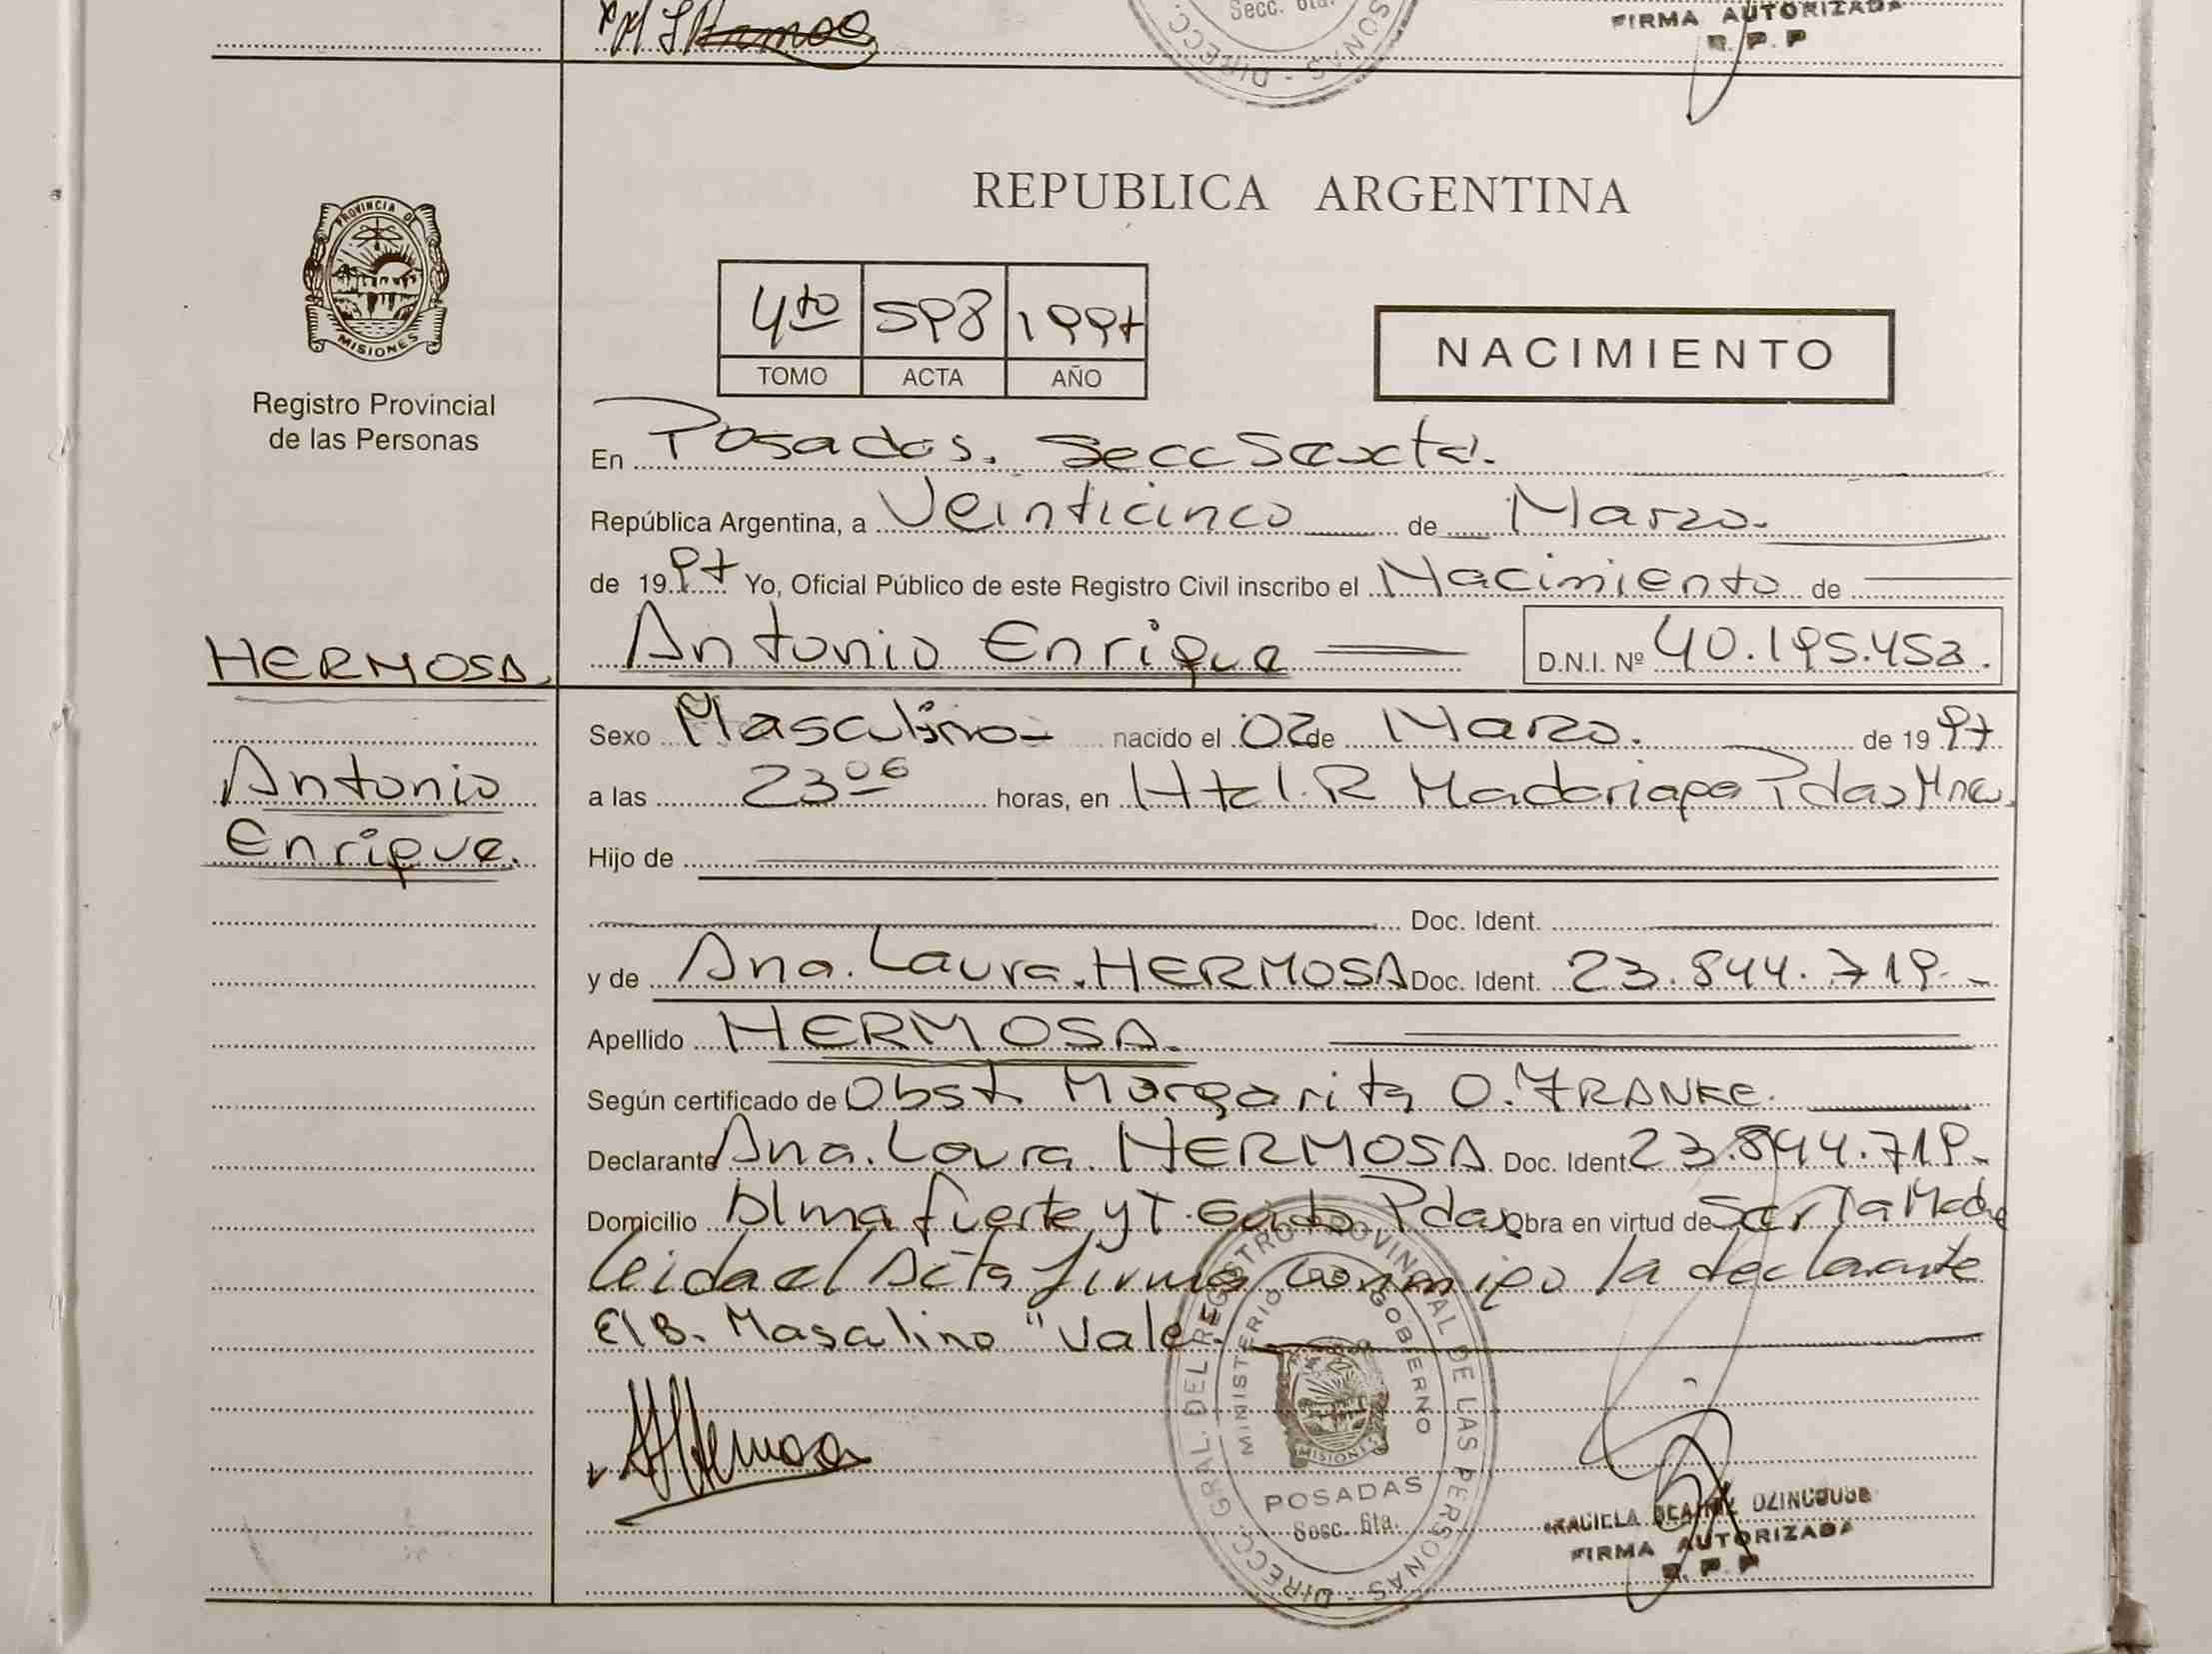 Secc. 6ta.
DIRECC.
FIRMA AUTORIZADA
R. P. P
PROVINCIA DE
MISIONES
Registro Provincial
de las Personas
REPUBLICA ARGENTINA
4to 598 1997
TOMO ACTA AÑO
NACIMIENTO
En Posadas. Secc Sexta.
República Argentina, a Veinticinco de Marzo.
de 1997 Yo, Oficial Público de este Registro Civil inscribo el Nacimiento de
HERMOSA
Antonio Enrique D.N.I. Nº 40.195.453.
Sexo Masculino nacido el 02 de Marzo. de 1997
Antonio
a las 23 06 horas, en Htal. R Madariaga Pdas Mnes.
Enrique.
Hijo de
Doc. Ident.
y de Ana. Laura. HERMOSA Doc. Ident. 23.844.719.-
Apellido HERMOSA.
Según certificado de Obst Margarita O. FRANKE.
Declarante Ana. Laura. HERMOSA Doc. Ident 23.844.719.-
Domicilio Alma fuerte y T. Pdas Obra en virtud de ser la Madre
leida el Acta firma conmigo la declarante
E/B. Masculino "Vale"
DIRECC. GRAL. DEL REGISTRO PROVINCIAL DE LAS PERSONAS -
MINISTERIO DE GOBIERNO
MISIONES
POSADAS
Secc. 6ta.
FIRMA AUTORIZADA
R. P. P